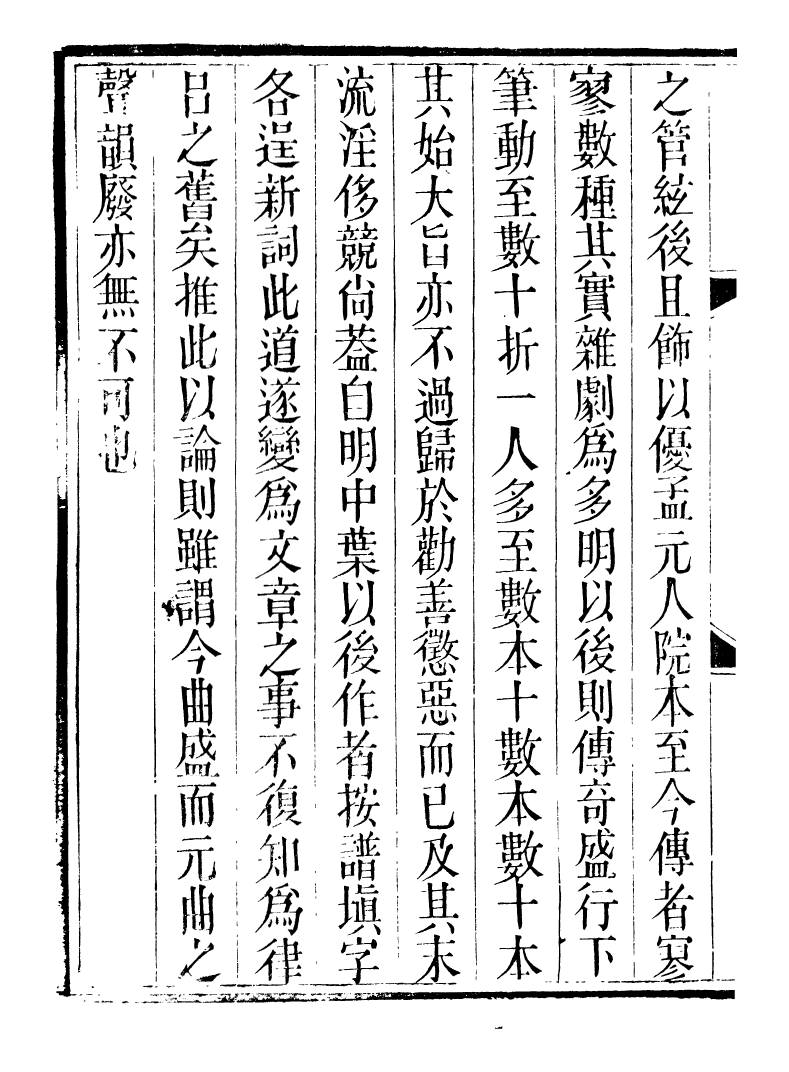 之管絃後且飾以優孟元人院本至今傳者寥
寥數種其實雜劇爲多明以後則傳奇盛行下
筆動至數十折一人多至數本十數本數十本
其始大旨亦不過歸於勸善懲惡而已及其末
流淫侈競尙葢自明中葉以後作者按譜塡字
各逞新詞此道遂變爲文章之事不復知爲律
呂之舊矣推此以論則雖謂今曲盛而元曲之
聲韻廢亦無不可也